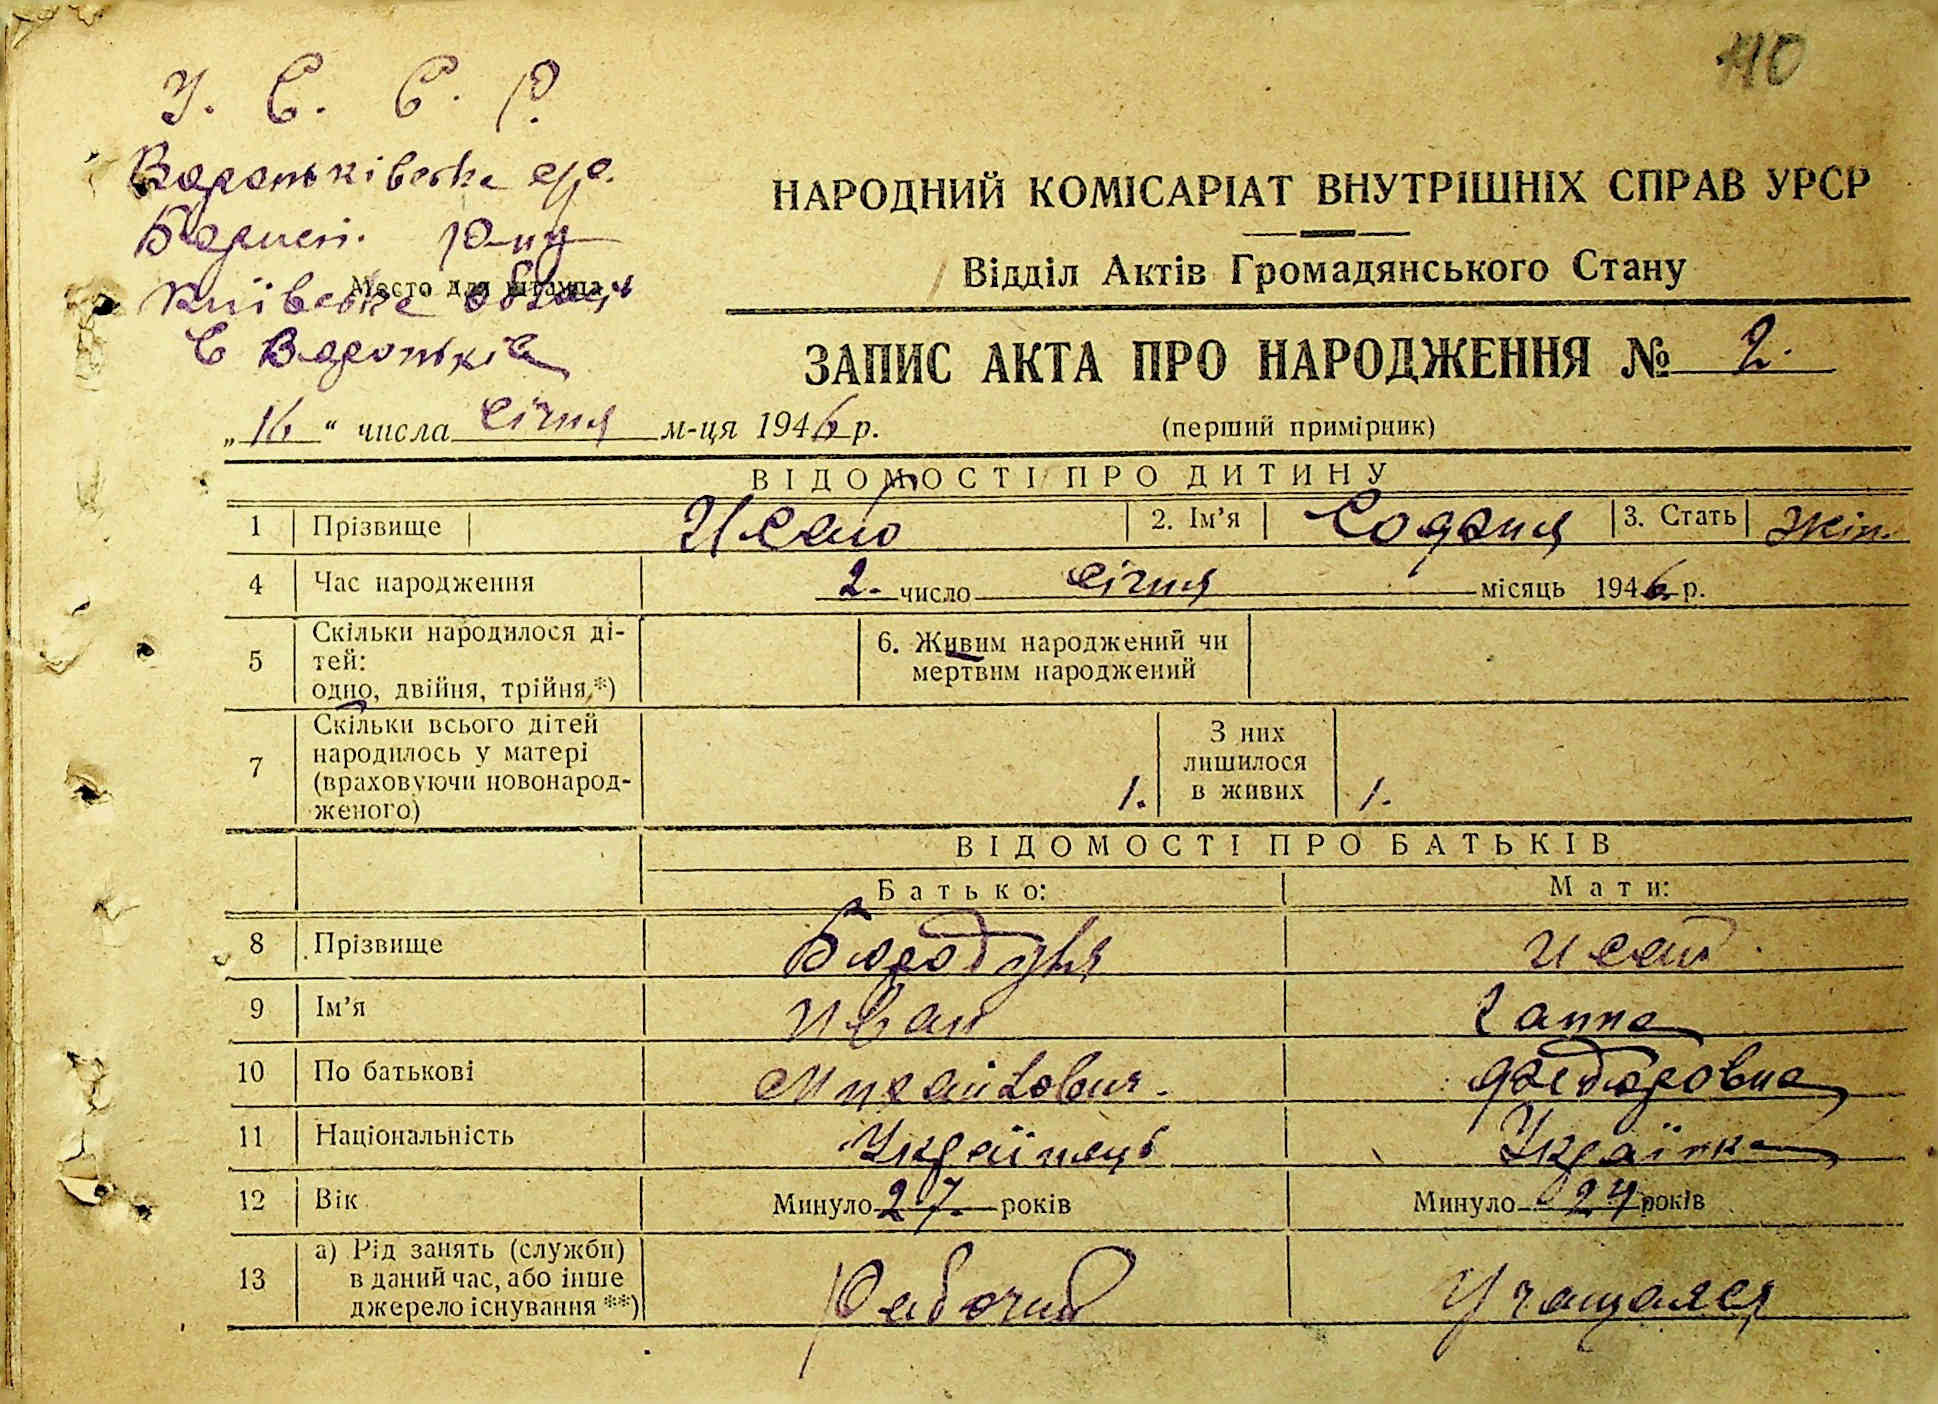 110
У. С. С. Р.
Вороньківська с/р.
Борисп. р-ну
Место для штампа
Київська област
С Вороньків
НАРОДНИЙ КОМІСАРІАТ ВНУТРІШНІХ СПРАВ УРСР
Відділ Актів Громадянського Стану
ЗАПИС АКТА ПРО НАРОДЖЕННЯ № 2.
„16“ числа січня м-ця 1946 р. (перший примірник)
ВІДОМОСТІ ПРО ДИТИНУ
1 Прізвище Исай 2. Ім’я София 3. Стать жін.
4 Час народження 2. число січня місяць 1946 р.
5 Скільки народилося ді-
тей:
одно, двійня, трійня,*) 6. Живим народжений чи
мертвим народжений
7 Скільки всього дітей
народилось у матері
(враховуючи новонарод-
женого) 1. З них
лишилося
в живих 1.
ВІДОМОСТІ ПРО БАТЬКІВ
Батько: Мати:
8 Прізвище Исай
9 Ім’я Иван Ганна
10 По батькові Михайлович. Федоровна
11 Національність Українець Українка
12 Вік Минуло 27 років Минуло 24 років
13 а) Рід занять (служби)
в даний час, або інше
джерело існування **) Рабочий Учащаяся